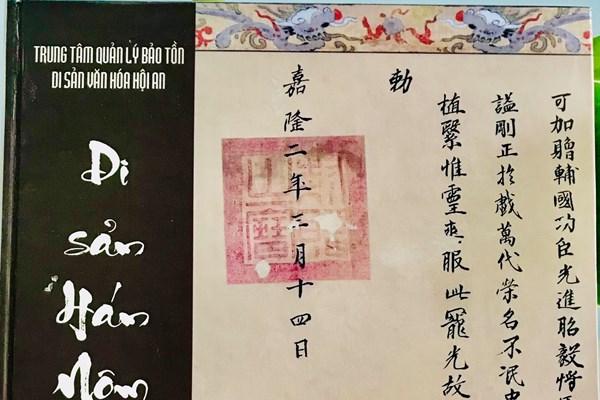 TRUNG TÂM QUẢN LÝ BẢO TỒN
DI SẢN VĂN HÓA HỘI AN
Di
sản
Hán
Nôm
可加贈輔國功臣光進昭毅將
諡剛正於戲萬代榮名不泯史
植繄惟靈爽服此寵光故
勅
嘉隆二年三月十四日